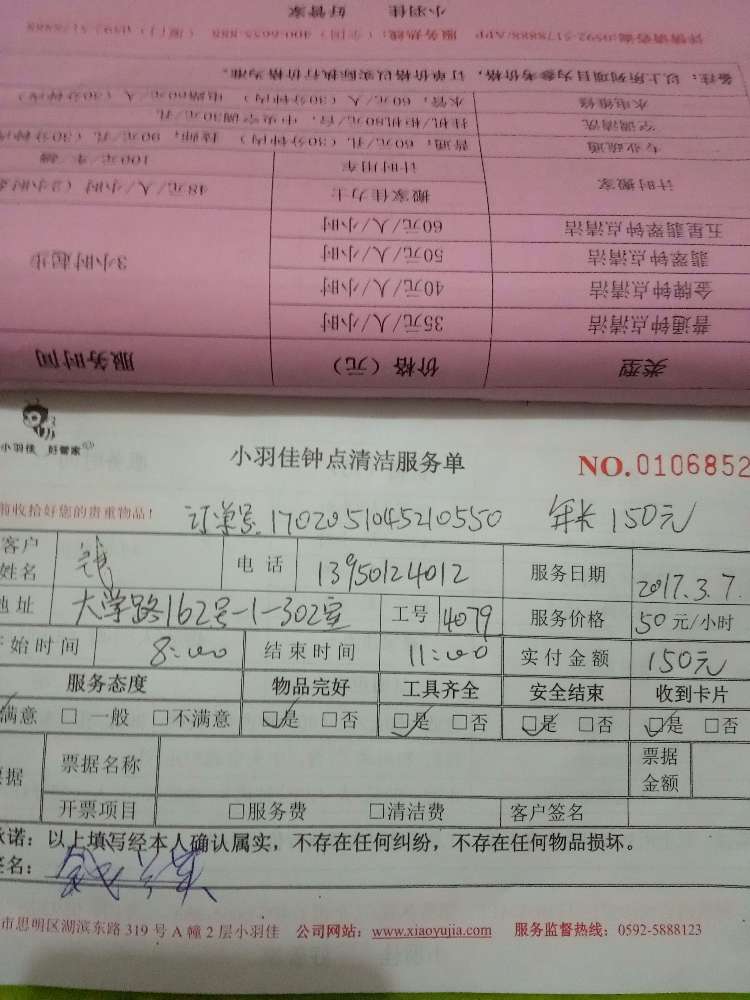 小羽佳 好管家
详情请咨询:0592-5178888/APP 服务热线:(全国)400-6655-888 (厦门)0592-5178888
备注:以上所列项目为参考价格,订单价格以实际执行价格为准。
水电维修 水管:60元/人(30分钟内) 电路60元/人(30分钟内)
空调清洗 挂机/柜机80元/台,中央空调30元/孔
专业疏通 普通:60元/孔(30分钟内) 技师:90元/孔(30分钟内
计时搬家 计时用车 100元/车/趟
搬家佳力士 48元/人/小时(2小时起
五星翡翠钟点清洁 60元/人/小时 3小时起步
翡翠钟点清洁 50元/人/小时
金牌钟点清洁 40元/人/小时
普通钟点清洁 35元/人/小时
类型 价格(元) 服务时间
小羽佳 好管家
小羽佳钟点清洁服务单 NO.0106852
前收拾好您的贵重物品! 订单号 1702051045210550 年长 150元
客户姓名 钱 电话 13950124012 服务日期 2017.3.7.
地址 大学路162号-1-302室 工号 4079 服务价格 50元/小时
开始时间 8:00 结束时间 11:00 实付金额 150元
服务态度 物品完好 工具齐全 安全结束 收到卡片
满意 □一般 □不满意 ☑是 □否 ☑是 □否 ☑是 □否 ☑是 □否
票据 票据名称 票据金额
开票项目 □服务费 □清洁费 客户签名
承诺:以上填写经本人确认属实,不存在任何纠纷,不存在任何物品损坏。
签名:
市思明区湖滨东路 319 号 A 幢 2 层小羽佳 公司网站:www.xiaoyujia.com 服务监督热线:0592-5888123